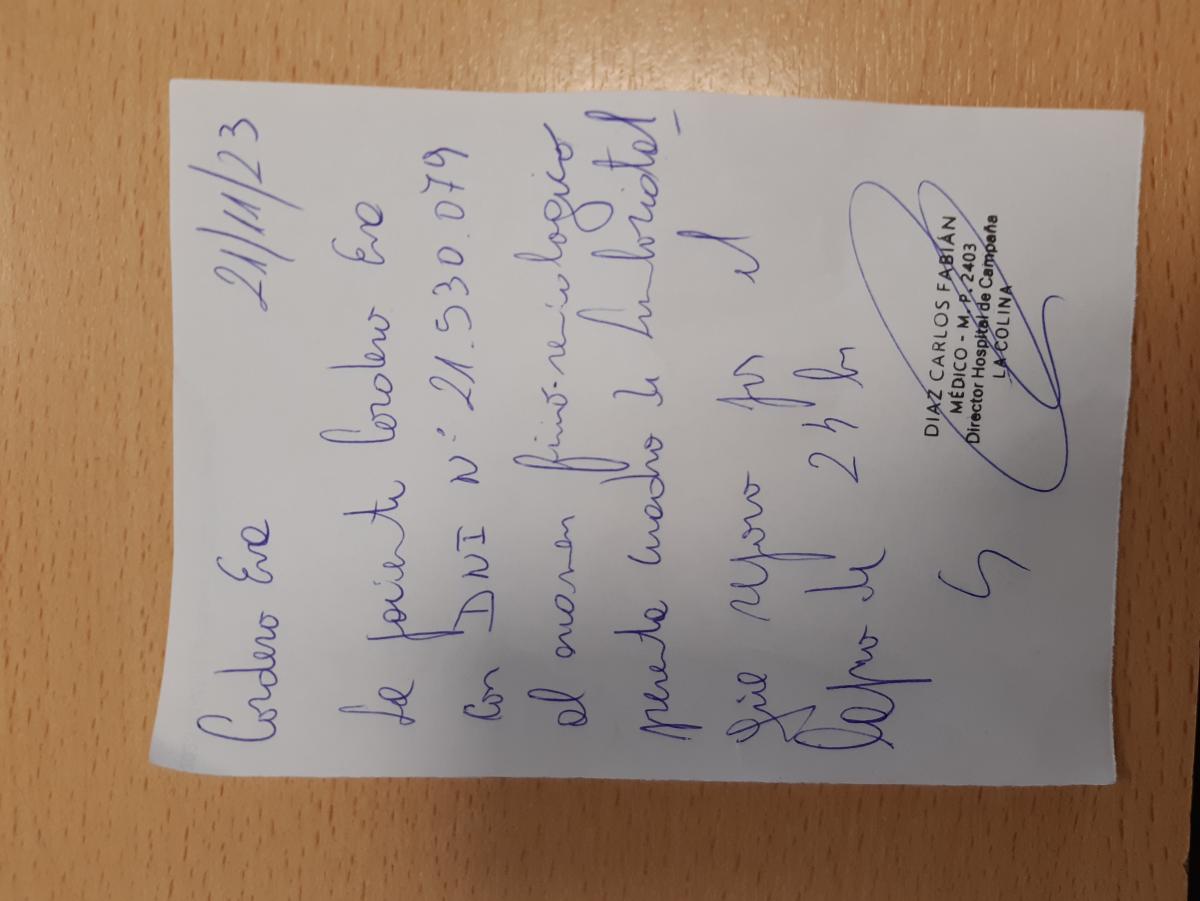 Cordero Eva
21/11/23
La paciente Cordero Eva
con DNI N° 21.530.079
al examen fisico-semiologico
presenta cuadro de lumbociatal
gia reposo por el
lapso de 24 hs
DIAZ CARLOS FABIÁN
MÉDICO - M.P. 2403
Director Hospital de Campaña
LA COLINA